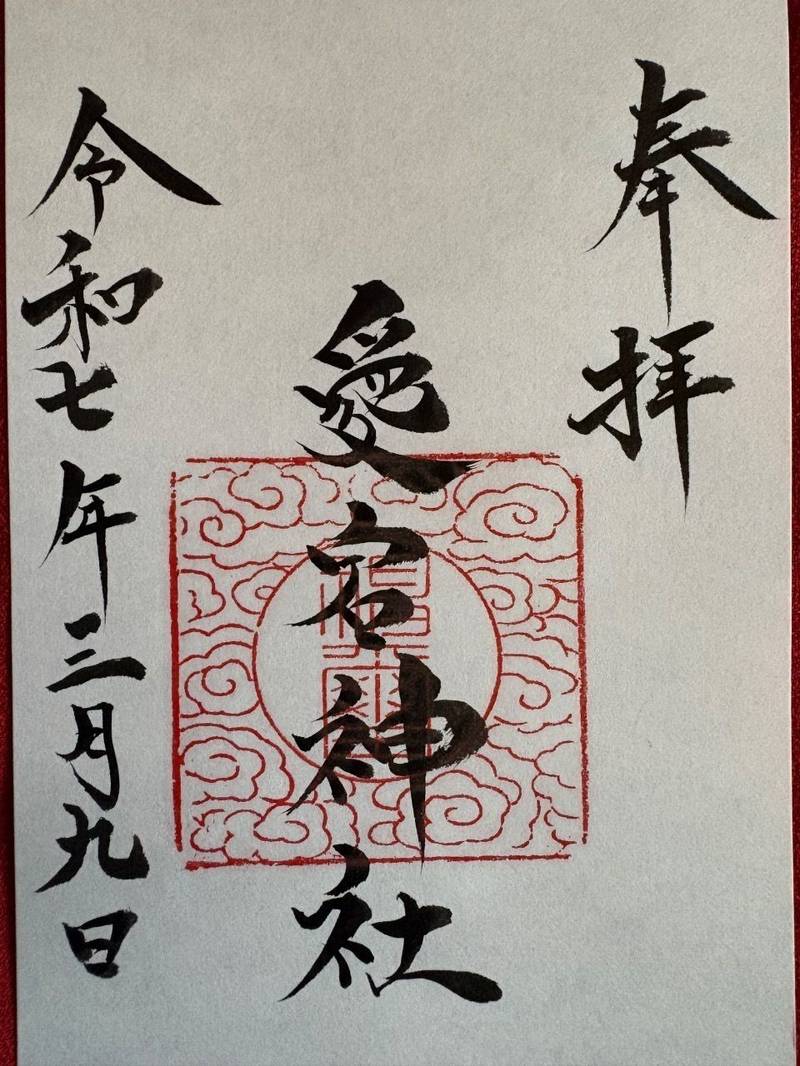 奉拝
愛宕神社
令和七年三月九日